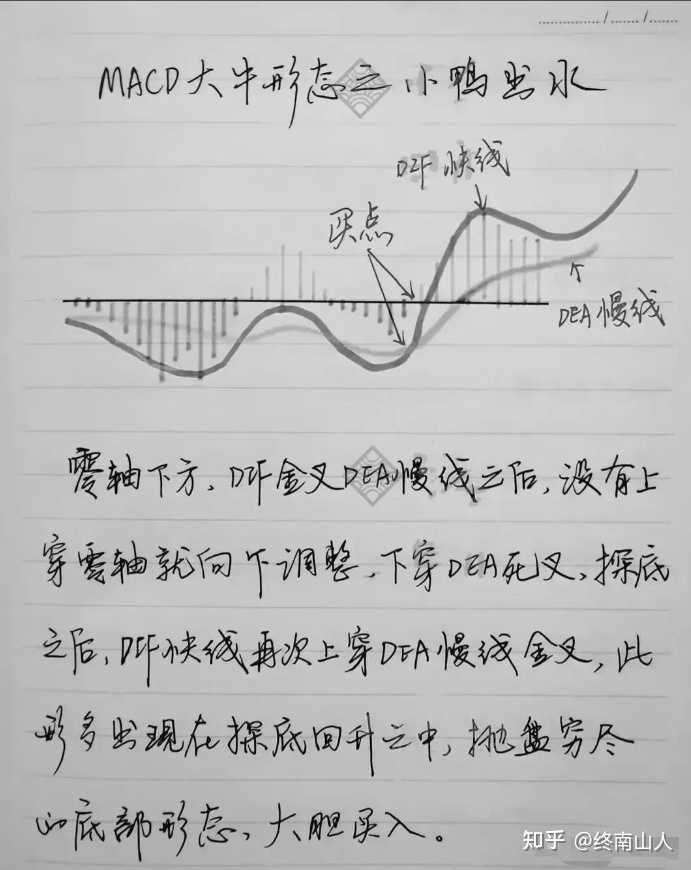 MACD大牛形态之小鸭出水
DIF快线
买点
DEA慢线
零轴下方，DIF金叉DEA慢线之后，没有上
穿零轴就向下调整，下穿DEA死叉，探底
之后，DIF快线再次上穿DEA慢线金叉，此
形多出现在探底回升之中，抛盘穷尽
的底部形态，大胆买入。
知乎 @终南山人